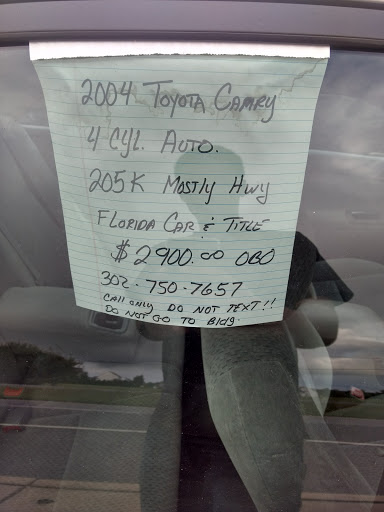 2004 TOYOTA CAMRY
4 CYL. AUTO.
205K MOSTLY HWY
FLORIDA CAR & TITLE
$2900.00 OBO
302.750.7657
CALL ONLY DO NOT TEXT!!
DO NOT GO TO Bldg.